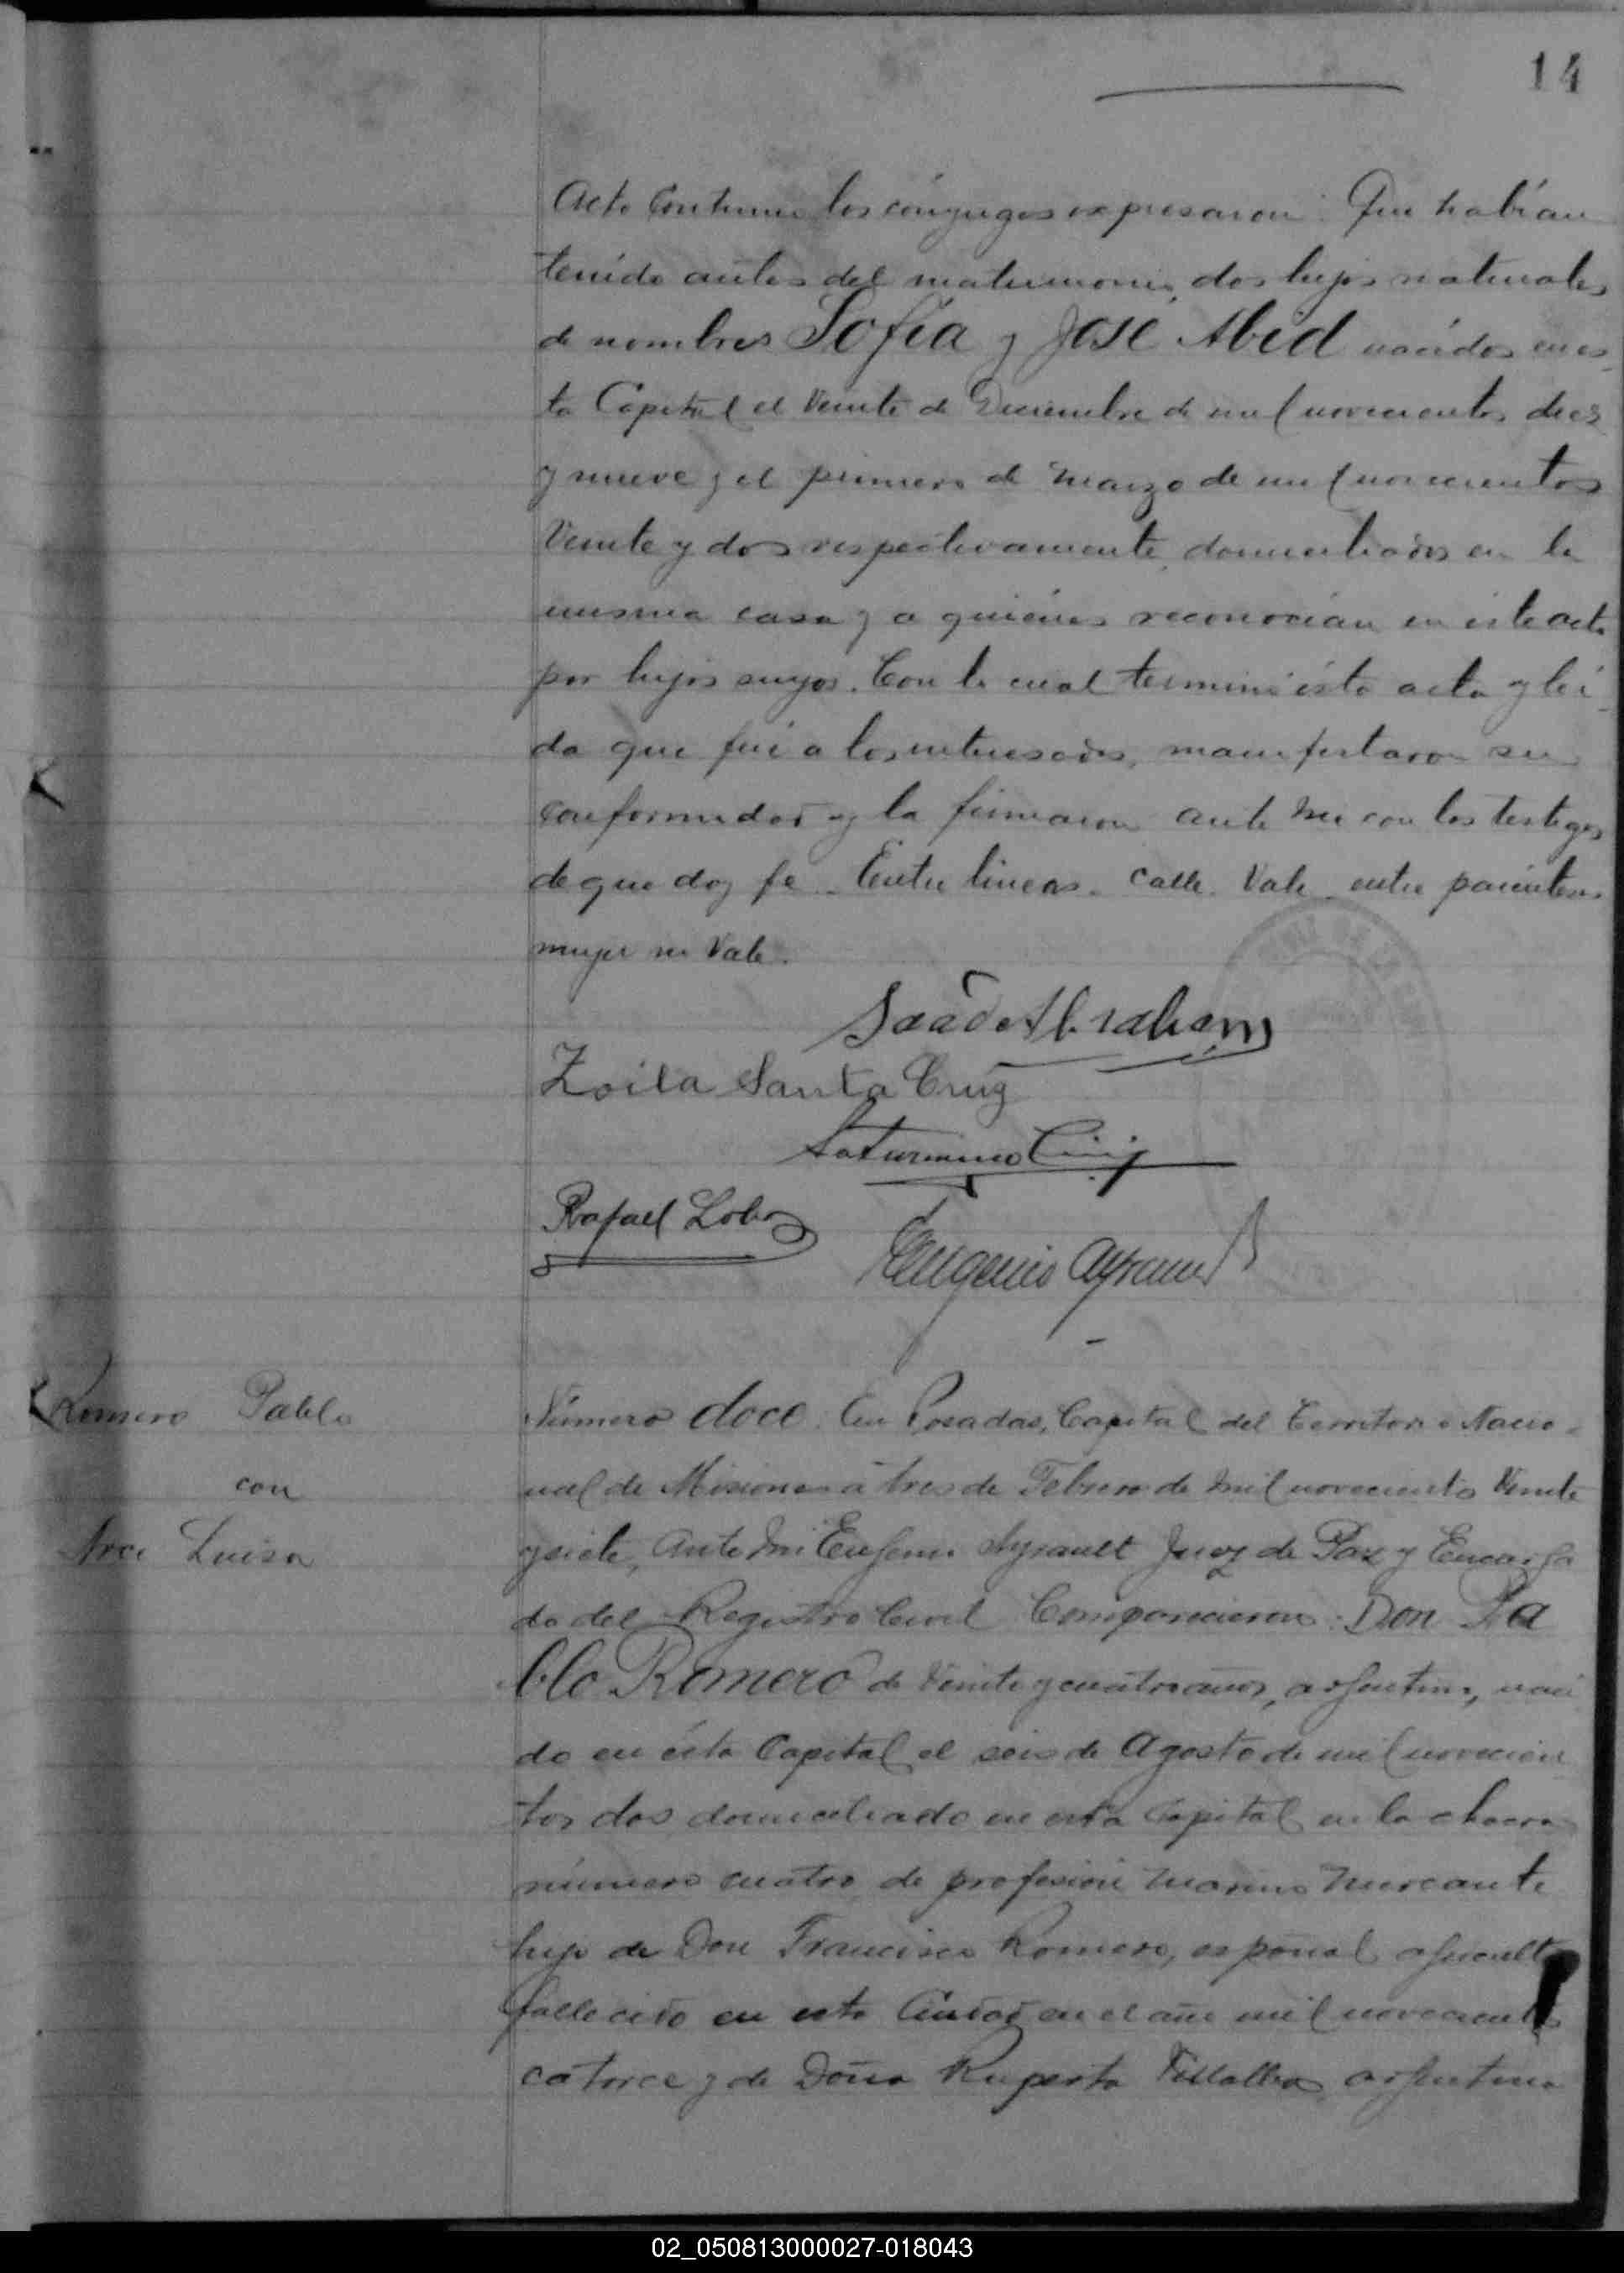 14
Acto continuo los cónyuges expresaron: Que habían
tenido antes del matrimonio, dos hijos naturales
de nombres Sofía y José Abid nacidos en es-
ta Capital el veinte de Diciembre de mil novecientos diez
y nueve y el primero de Marzo de mil novecientos
veinte y dos respectivamente, domiciliados en la
misma casa y a quiénes reconocían en este acto
por hijos suyos. Con lo cual terminó ésta acta y leí-
da que fué a los interesados, manifestaron su
conformidad y la firmaron ante mi con los testigos
de que doy fe. Entre líneas. calle. Vale. entre paréntesis
mujer no Vale.
Saad Abraham
Zoila Santa Cruz
Saturnino
Rafael Lobo
Eugenio Ayrault
Romero Pablo
con
Arce Luisa
Número doce. En Posadas, Capital del Territorio Nacio-
nal de Misiones a tres de Febrero de mil novecientos Veinte
y siete, Ante mi Eugenio Ayrault Juez de Paz y Encarga
do del Registro Civil Comparecieron: Don Pa
blo Romero de Veinte y cuatro años, argentino, naci
do en ésta Capital el seis de Agosto de mil novecien
tos dos domiciliado en esta Capital en la chacra
número cuatro de profesión Marino Mercante
hijo de Don Francisco Romero, español
fallecido en esta Ciudad en el año mil novecientos
catorce y de Doña Ruperta Villalba, argentina
02_050813000027-018043